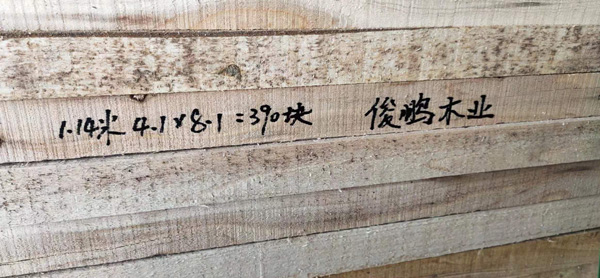 1.14米 4.1×8.1=390块 俊鹏木业